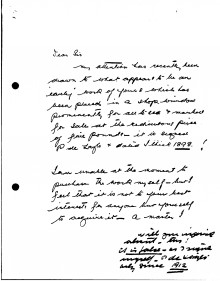 Dear Sir
my attention has recently been
drawn to what appears to be an
early work of yours which has
been placed in a shop window
prominently for all to see & marked
for sale at the ridiculous price
of five pounds — it is signed
P de Laszlo & dated I think 1898!
I am unable at the moment to
purchase the work myself — but I
feel that it is not to your best
interests for anyone but yourself
to acquire it — A
will
about this!
it is false — as I signed
myself
only since 1912